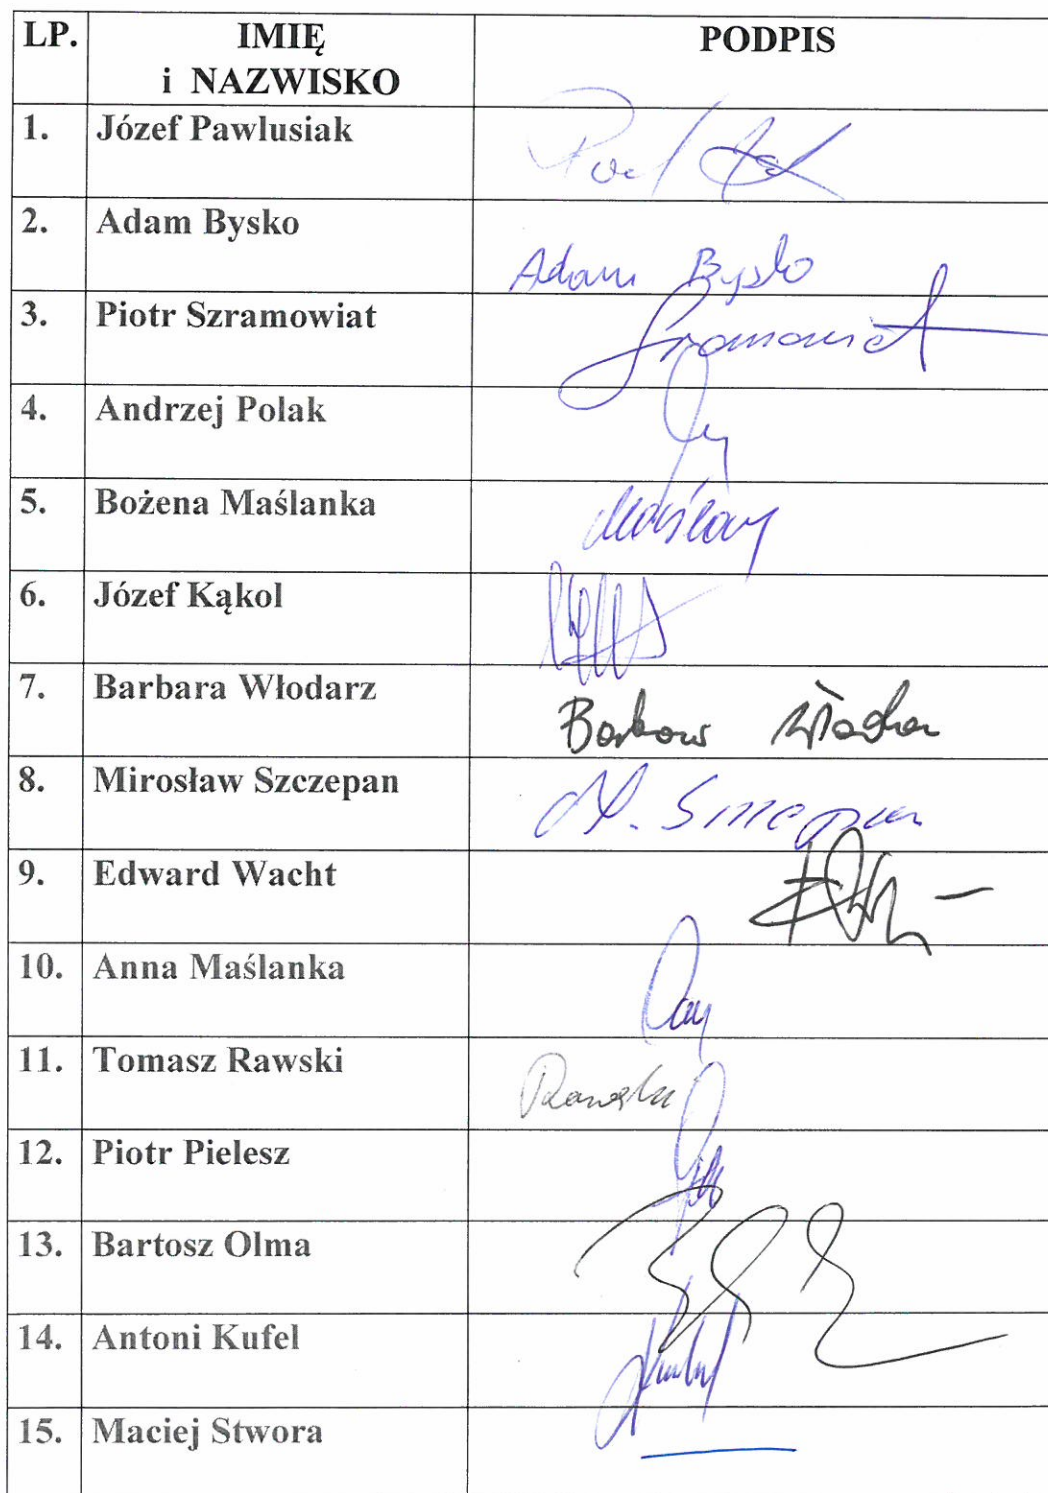 LP. IMIĘ PODPIS
i NAZWISKO
1. Józef Pawlusiak
2. Adam Bysko
Adam Bysko
3. Piotr Szramowiat
4. Andrzej Polak
5. Bożena Maślanka
6. Józef Kąkol
7. Barbara Włodarz
8. Mirosław Szczepan
9. Edward Wacht
10. Anna Maślanka
11. Tomasz Rawski
Rawski
12. Piotr Pielesz
13. Bartosz Olma
14. Antoni Kufel
15. Maciej Stwora